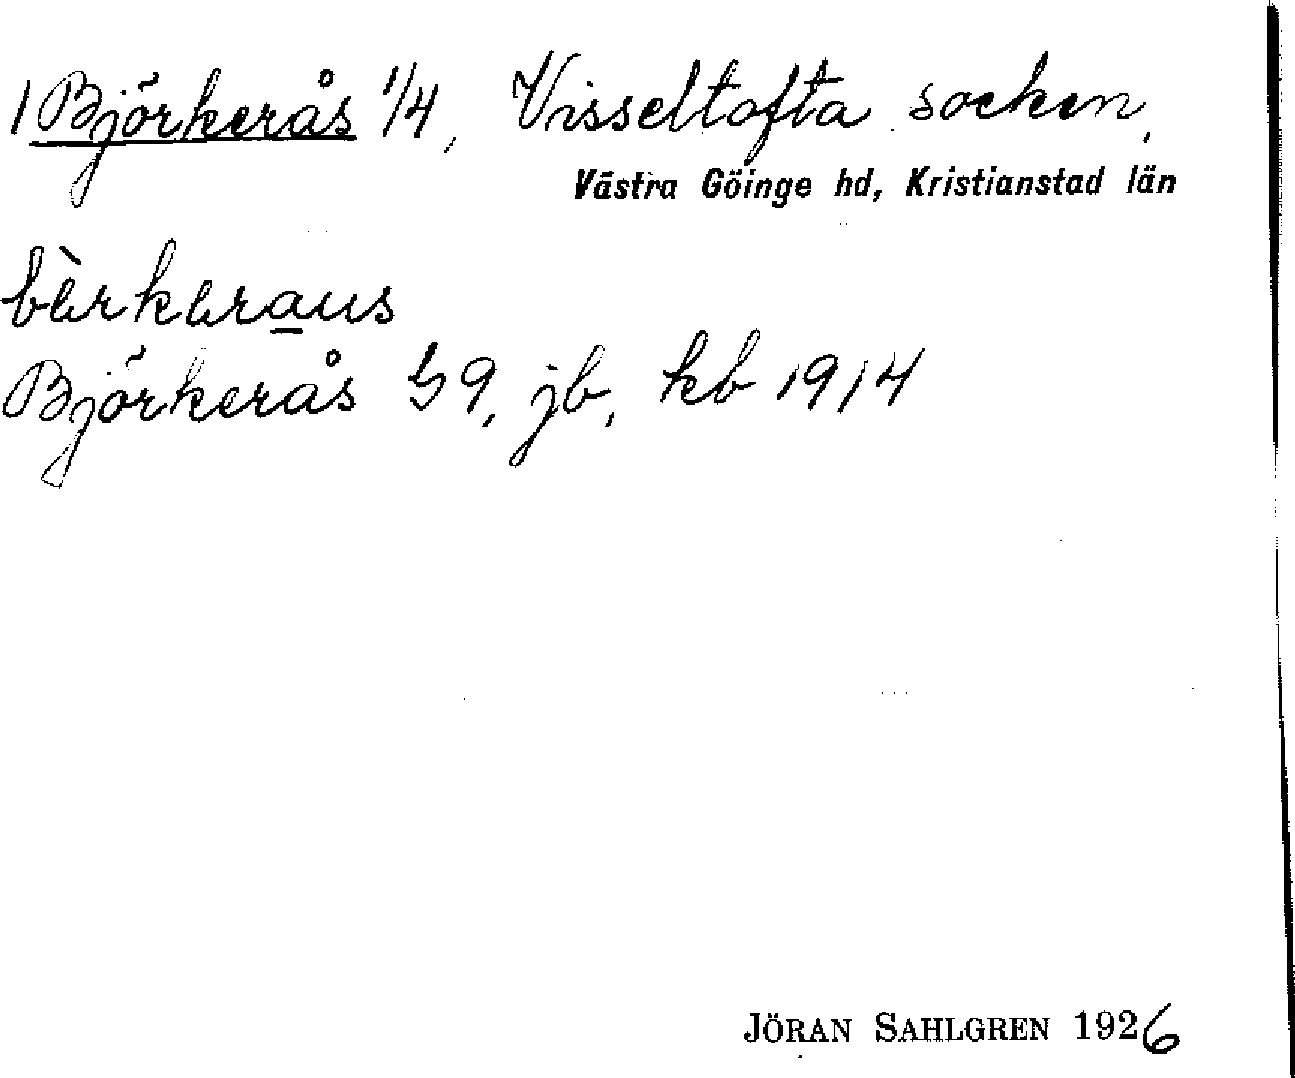 1 Björkerås 1/4, Visseltofta socken,
Västra Göinge hd, Kristianstad län
Björkerås G 9, jb, kb 1914
JÖRAN SAHLGREN 1926